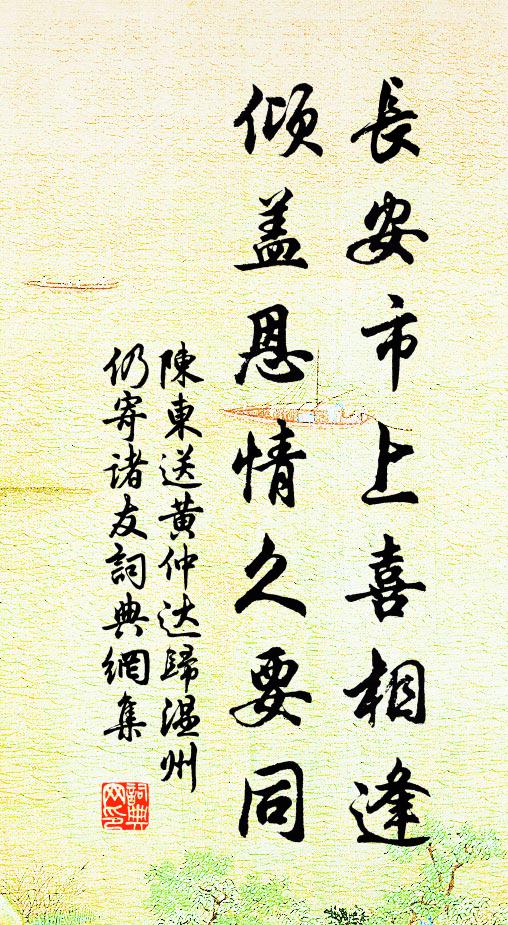 長安市上喜相逢
傾盖恩情久要同
陳東送黄仲达歸温州
仍寄诸友詞典網集
詞典
网印